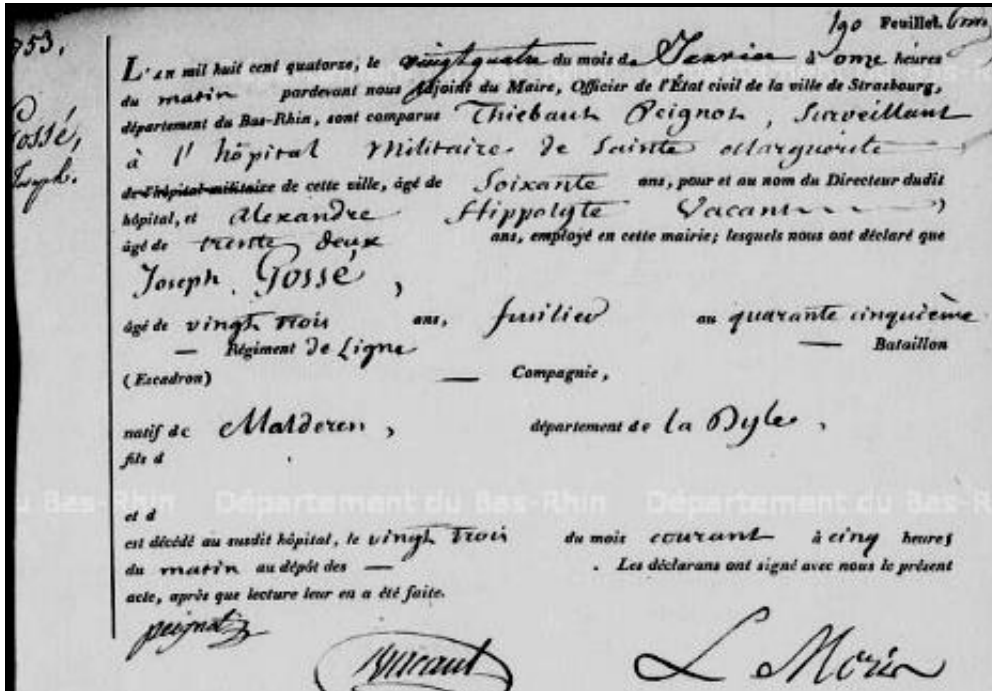 190 Feuillet.
753,
L'an mil huit cent quatorze, le vingt quatre du mois de Janvier à onze heures
du matin pardevant nous Adjoint du Maire, Officier de l'État civil de la ville de Strasbourg,
Gossé,
Joseph.
département du Bas-Rhin, sont comparus Thiebaut Peignot, Surveillant
à l'hôpital Militaire de Sainte Marguerite
de l'hôpital militaire de cette ville, âgé de Soixante ans, pour et au nom du Directeur dudit
hôpital, et Alexandre Hippolyte Vacant
âgé de trente deux ans, employé en cette mairie; lesquels nous ont déclaré que
Joseph Gossé,
âgé de vingt trois ans, fusilier au quarante cinquième
— Régiment de Ligne — Bataillon
(Escadron) — Compagnie,
natif de Malderen, département de la Dyle,
fils d
du Bas-Rhin Département du Bas-Rhin Département du Bas-R
et d
est décédé au susdit hôpital, le vingt trois du mois courant à cinq heures
du matin au dépôt des — . Les déclarans ont signé avec nous le présent
acte, après que lecture leur en a été faite.
peignot
Vacant L Morin